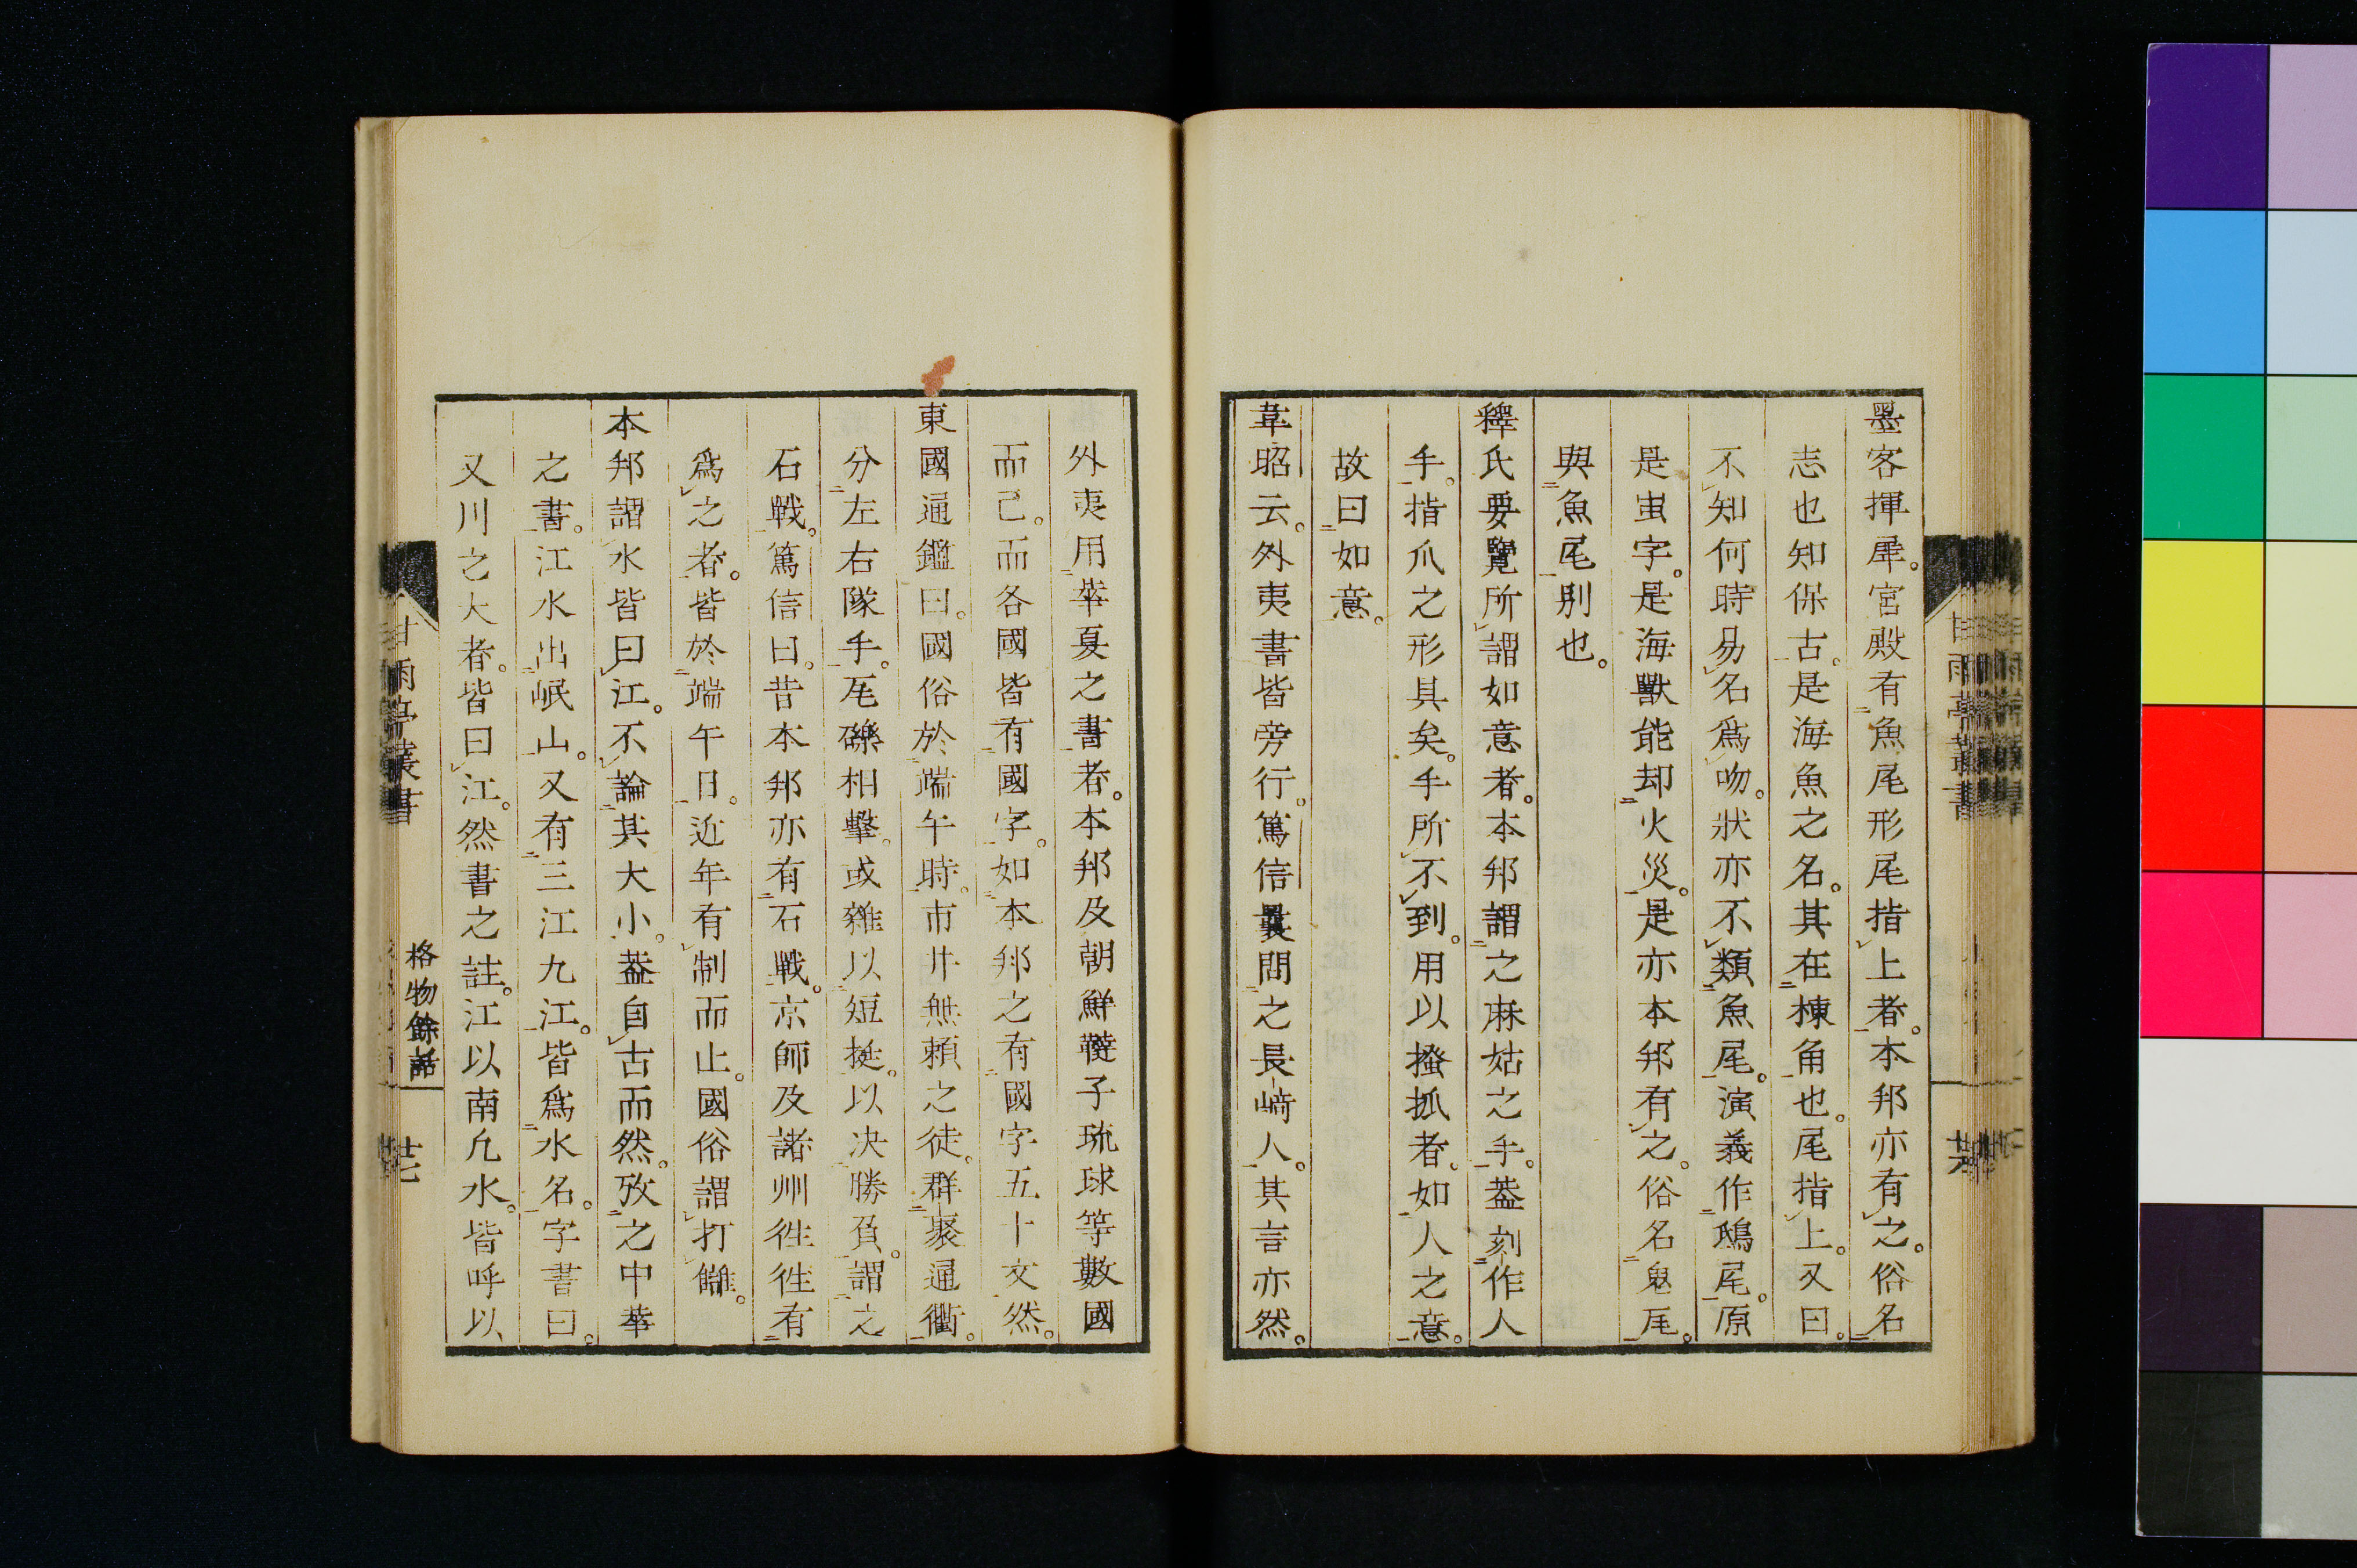 墨客揮犀。宮殿有魚尾形尾指上者。本邦亦有之。俗名
志也知保古。是海魚之名。其在棟角也。尾指上。又曰。
不知何時易名爲吻。狀亦不類魚尾。演義作鴟尾。原
是蚩字。是海獸能却火災。是亦本邦有之。俗名鬼瓦。
與魚尾別也。
釋氏要覽所謂如意者。本邦謂之麻姑之手。蓋刻作人
手。指爪之形具矣。手所不到。用以搔抓者。如人之意。
故曰如意。
韋昭云。外夷書皆旁行。篤信曩問之長崎人。其言亦然。
外夷用華夏之書者。本邦及朝鮮韃子琉球等數國
而已。而各國皆有國字。如本邦之有國字五十文然。
東國通鑑曰。國俗於端午時。市井無賴之徒。群聚通衢。
分左右隊手。瓦礫相擊。或雜以短挺。以决勝負。謂之
石戰。篤信曰。昔本邦亦有石戰。京師及諸州徃徃有
爲之者。皆於端午日。近年有制而止。國俗謂打讎。
本邦謂水皆曰江。不論其大小。蓋自古而然。攷之中華
之書。江水出岷山。又有三江九江。皆爲水名。字書曰。
又川之大者。皆曰江。然書之註。江以南凢水。皆呼以
甘雨亭叢書
格物餘話
廿七
甘雨亭叢書
廿六